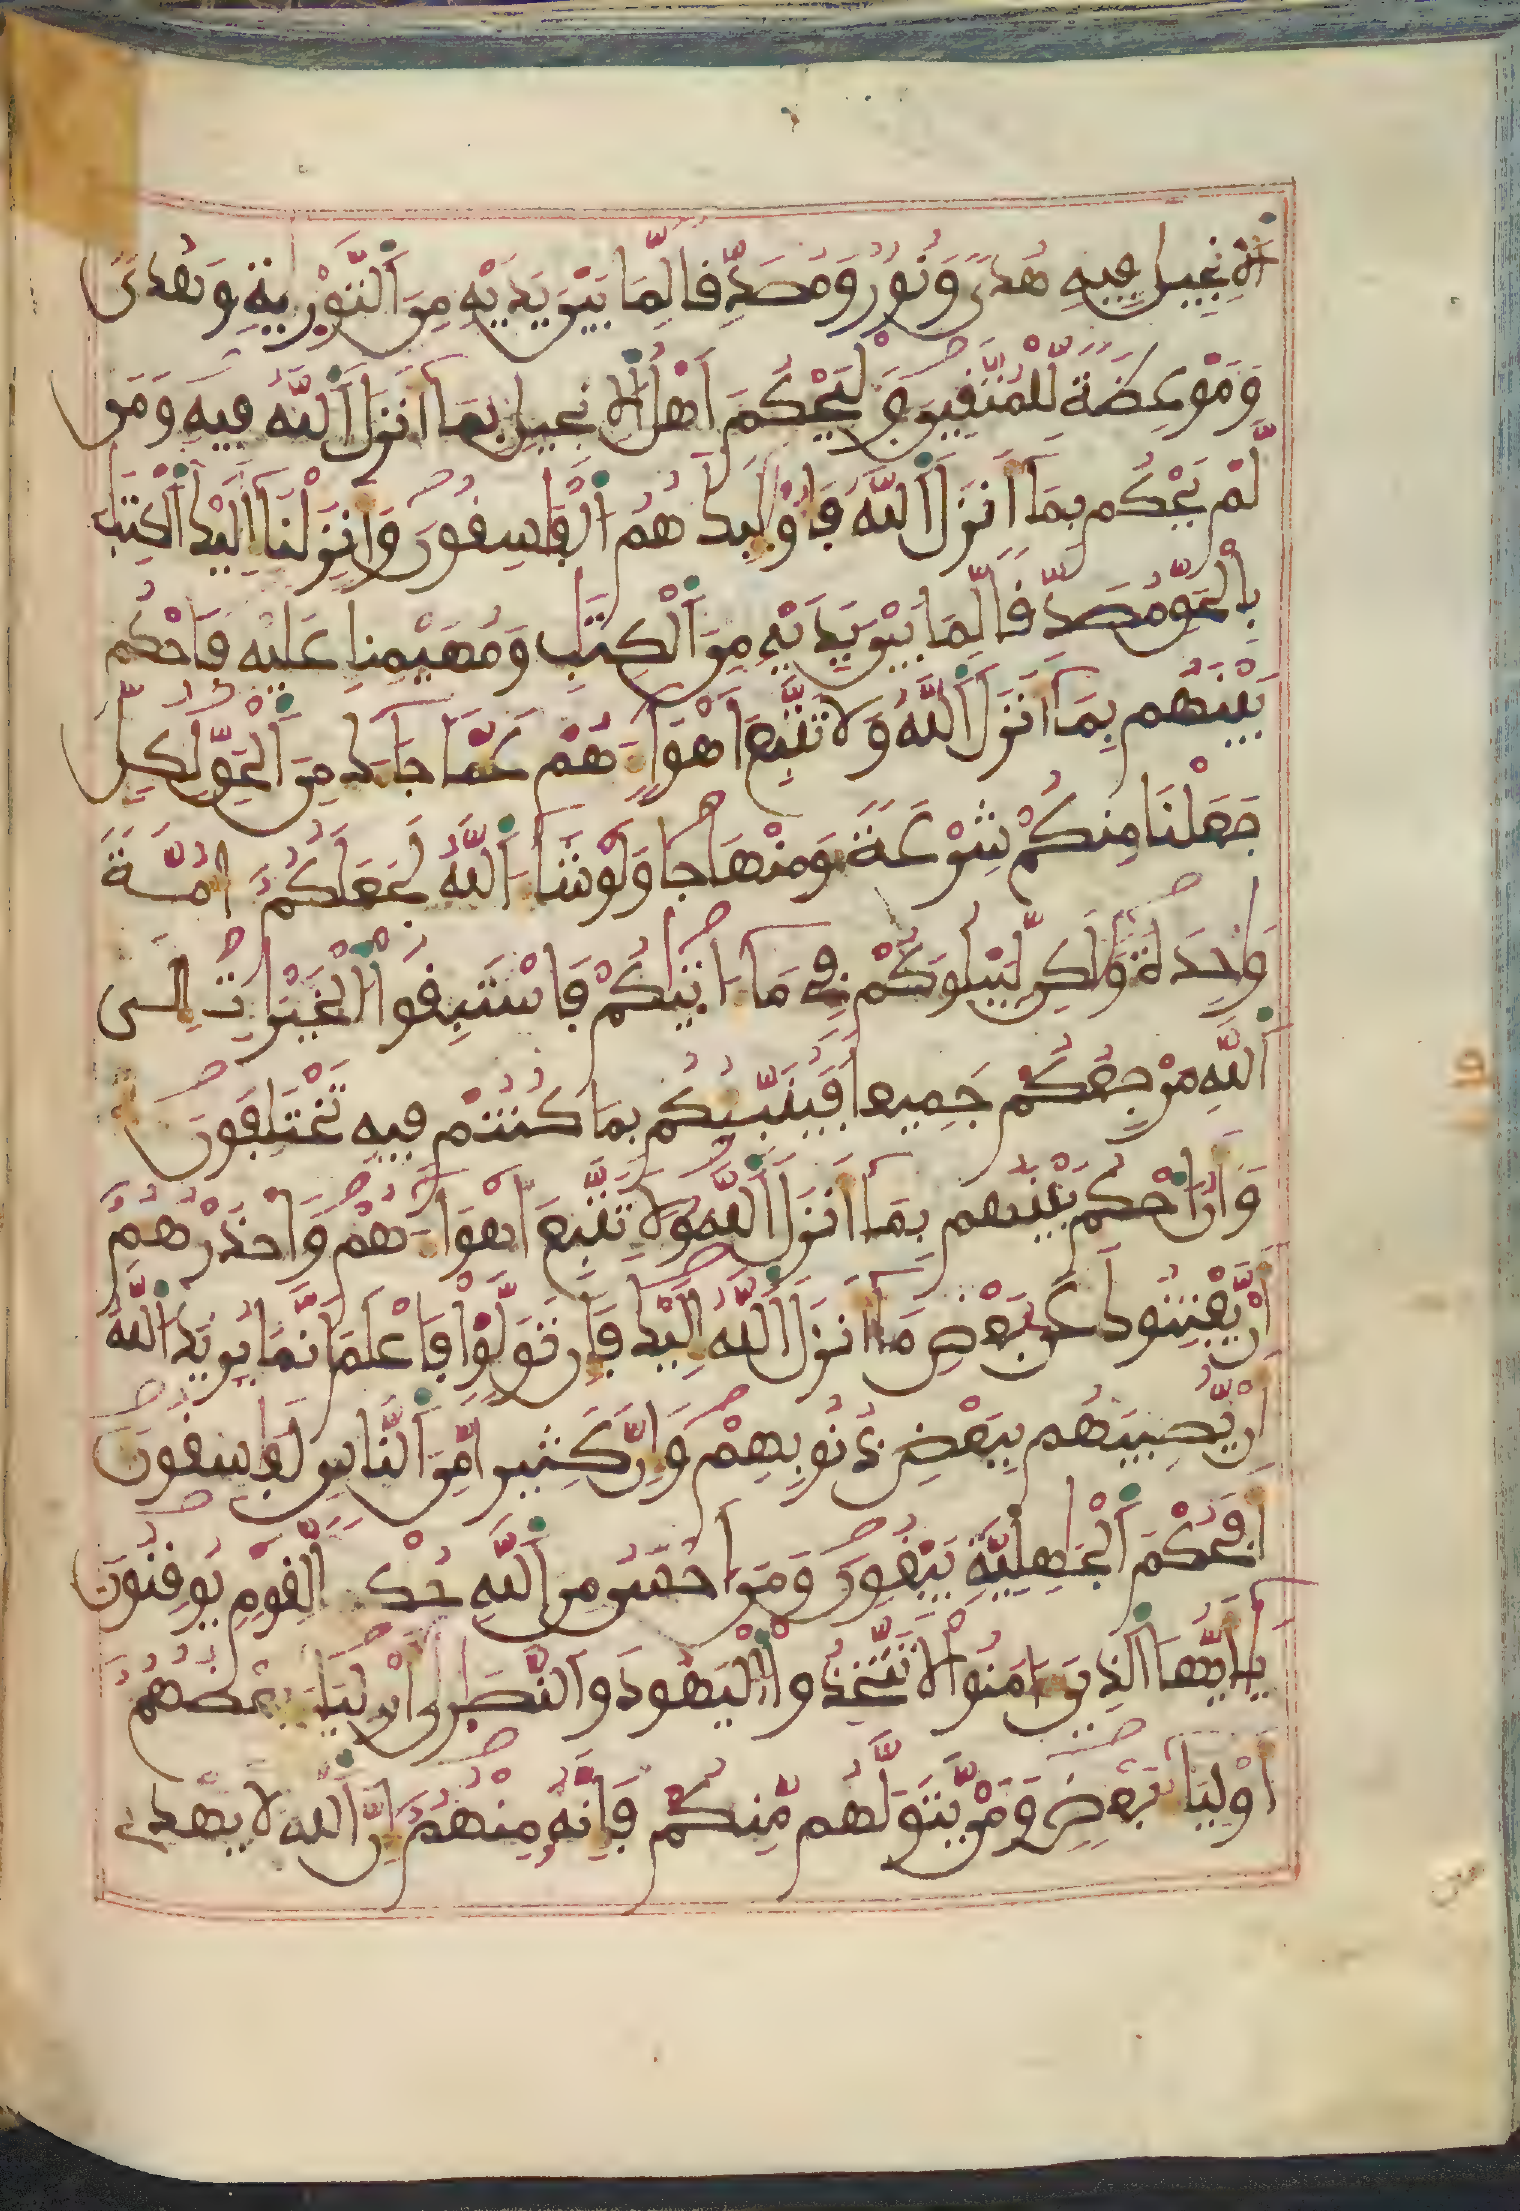 اَلِانجِيلَ فِيهِ هُدىً وَنُورٌ وَمُصَدِّقا لِّمَا بَيْنَ يَدَيْهِ مِنَ اَلتَّوْرٜيةِ وَهُدىً
وَمَوْعِظَةً لِّلْمُتَّقِينَ وَلْيَحْكُمَ اَهْلُ اَلِانجِيلِ بِمَا أَنزَلَ اَللَّهُ فِيهِ وَمَن
لَّمْ يَحْكُم بِمَا أَنزَلَ اَللَّهُ فَأُوْلَٰئِكَ هُمُ اَلْفَٰسِقُونَ وَأَنزَلْنَا إِلَيْكَ اَلْكِتَٰبَ
بِالْحَقِّ مُصَدِّقا لِّمَا بَيْنَ يَدَيْهِ مِنَ اَلْكِتَٰبِ وَمُهَيْمِنا عَلَيْهِ فَاحْكُم
بَيْنَهُم بِمَا أَنزَلَ اَللَّهُ وَلَا تَتَّبِعَ اَهْوَاءَهُمْ عَمَّا جَاءَكَ مِنَ اَلْحَقِّ لِكُلٍّ
جَعَلْنَا مِنكُمْ شِرْعَةً وَمِنْهَاجا وَلَوْ شَاءَ اَللَّهُ لَجَعَلَكُمُ أُمَّةً
وَٰحِدَةً وَلَٰكِن لِّيَبْلُوَكُمْ فِي مَا ءَاتَيٰكُمْ فَاسْتَبِقُوا اَلْخَيْرَاتِ إِلَى
اَللَّهِ مَرْجِعُكُمْ جَمِيعا فَيُنَبِّئُكُم بِمَا كُنتُمْ فِيهِ تَخْتَلِفُونَ
وَأَنُ اَحْكُم بَيْنَهُم بِمَا أَنزَلَ اَللَّهُ وَلَا تَتَّبِعَ اَهْوَاءَهُمْ وَاحْذَرْهُمُ
أَنْ يَّفْتِنُوكَ عَن بَعْضِ مَا أَنزَلَ اَللَّهُ إِلَيْكَ فَإِن تَوَلَّوْا فَاعْلَمَ اَنَّمَا يُرِيدُ اَللَّهُ
أَنْ يُّصِيبَهُم بِبَعْضِ ذُنُوبِهِمْ وَإِنَّ كَثِيرا مِّنَ اَلنَّاسِ لَفَٰسِقُونَ
أَفَحُكْمَ اَلْجَٰهِلِيَّةِ يَبْغُونَ وَمَنَ اَحْسَنُ مِنَ اَللَّهِ حُكْما لِّقَوْمٍ يُوقِنُونَ
يَٰأَيُّهَا اَلذِينَ ءَامَنُوا لَا تَتَّخِذُوا اَلْيَهُودَ وَالنَّصَٰرَىٰ أَوْلِيَاءَ بَعْضُهُمُ
أَوْلِيَاءُ بَعْضٍ وَمَنْ يَّتَوَلَّهُم مِّنكُمْ فَإِنَّهُ مِنْهُمُ إِنَّ اَللَّهَ لَا يَهْدِي